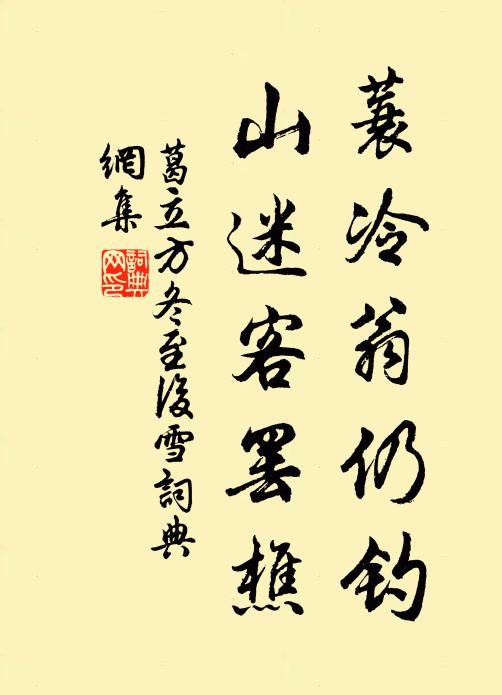 蓑冷翁仍钓
山迷客罢樵
葛立方冬至後雪詞典
網集
詞典网印